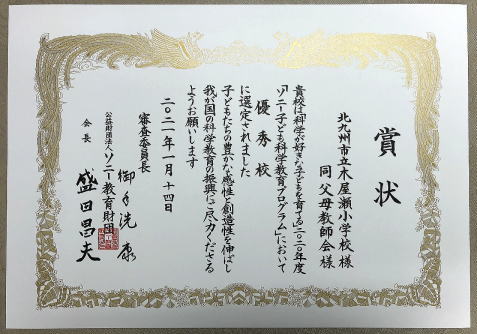 賞状
北九州市立木屋瀬小学校様
同父母教師会様
貴校は「科学が好きな子どもを育てる」二〇二〇年度
「ソニー子ども科学教育プログラム」において
優秀校
に選定されました
子どもたちの豊かな感性と創造性を伸ばし
我が国の科学教育の振興にご尽力くださる
ようお願いします
二〇二一年一月十四日
審査委員長
御手洗康
公益財団法人ソニー教育財団
会長
盛田昌夫